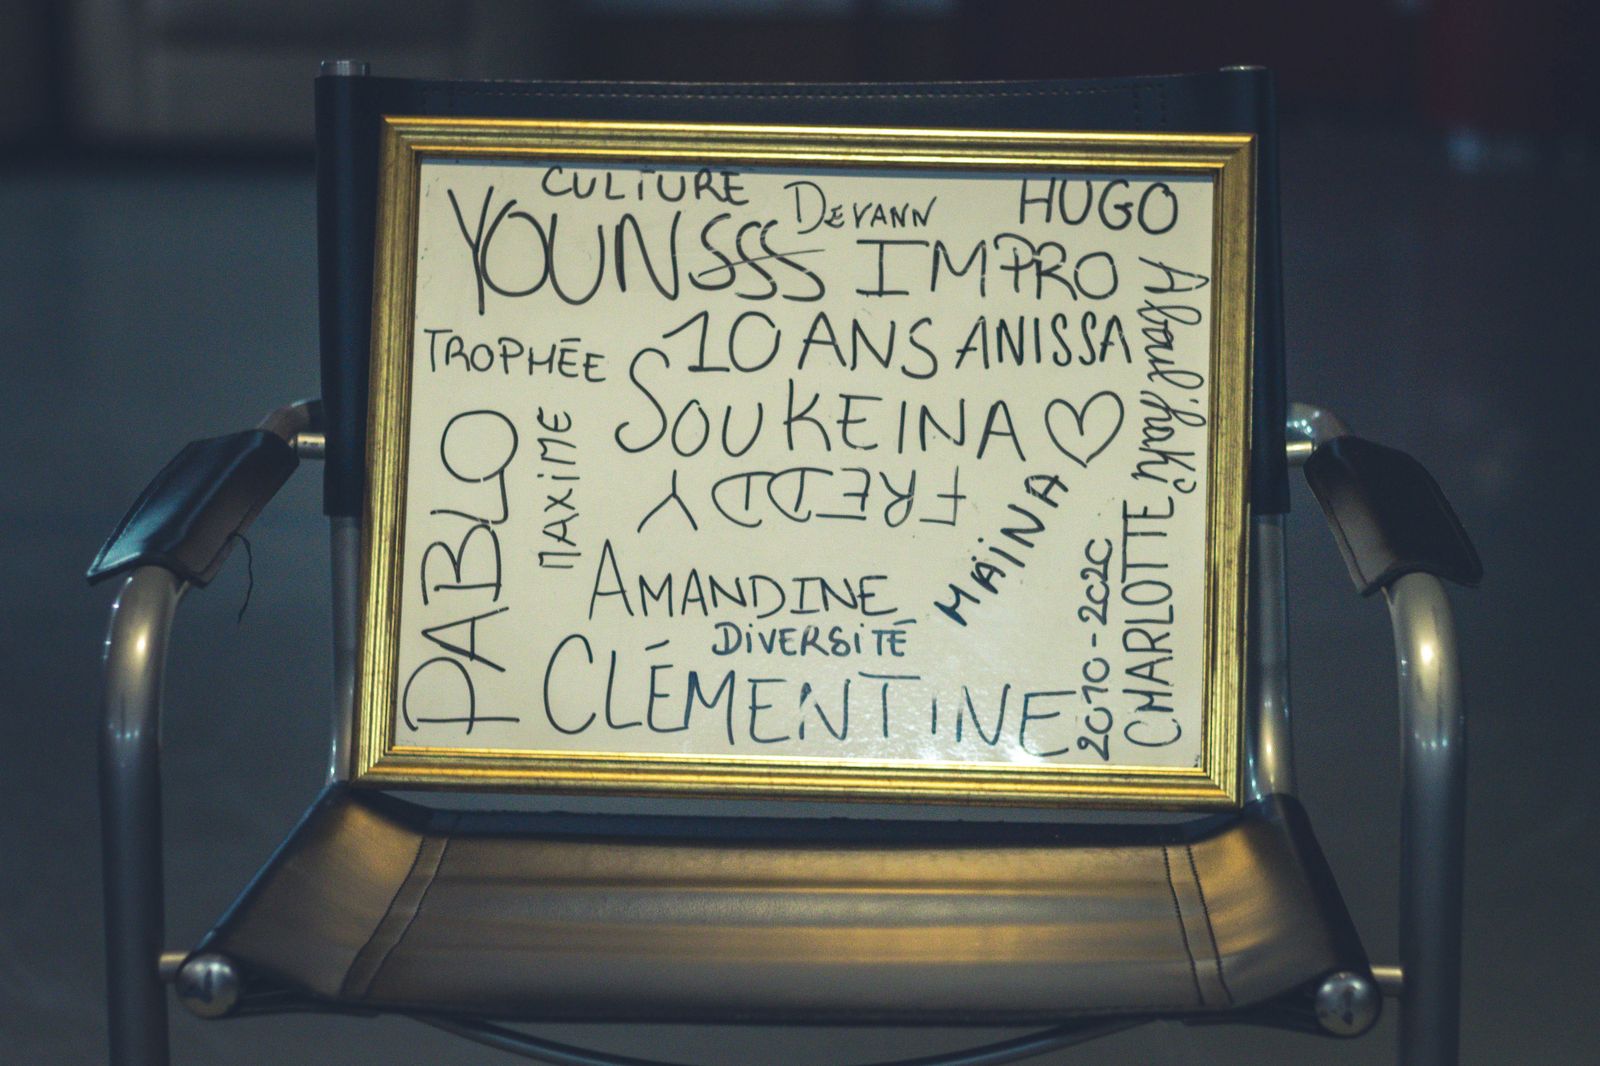 CULTURE
DEVANN
HUGO
YOUNSSS
IMPRO
TROPHÉE
10 ANS
ANISSA
SOUKEINA ♡
FREDDY
PABLO
MAXiME
MAÏNA
AMANDINE
DiVERSiTÉ
CLÉMENTiNE
2010-2020
CHARLOTTE